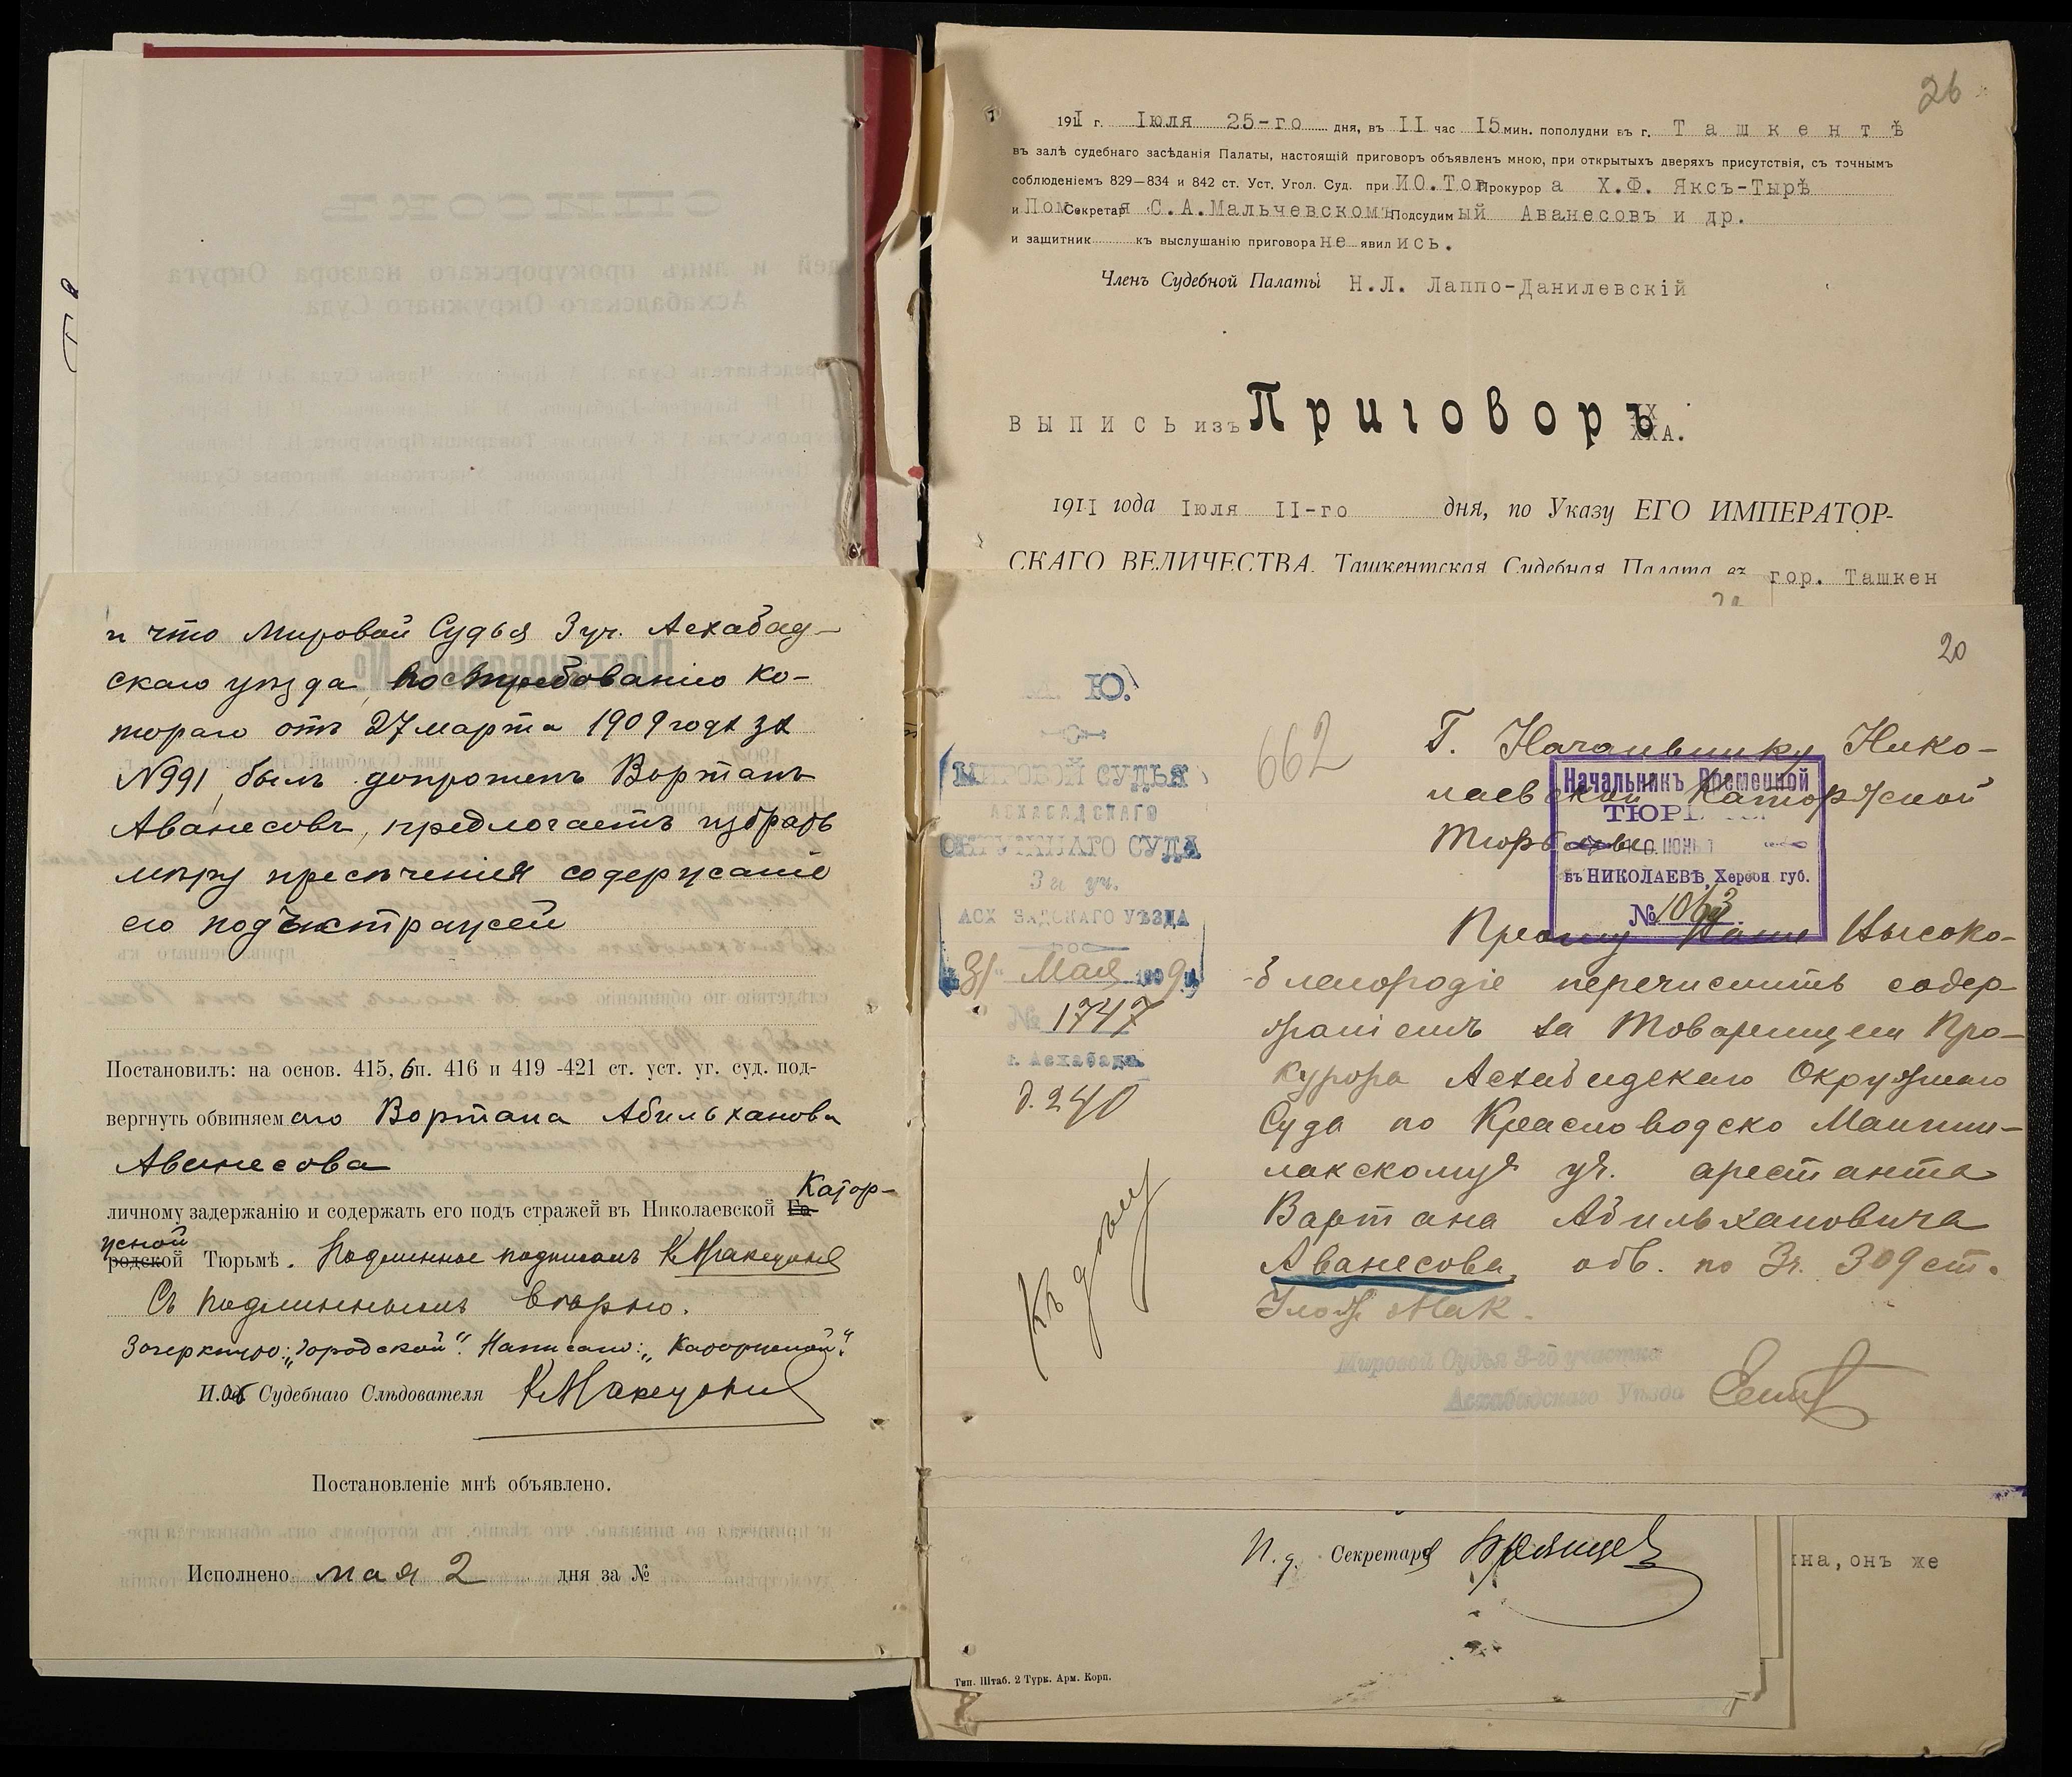 и что Мировой Судья 3 уч. Асхабад-
скаго уѣзда, по требованію ко-
тораго отъ 27 марта 1909 года за
№991, былъ допрошенъ Вартанъ
Аванесовъ, предлагаетъ избрать
мѣру пресѣченія содержаніе
его подъ стражей
Постановилъ: на основ. 415, 6 п. 416 и 419-421 ст. уст. уг. суд. под-
вергнуть обвиняемаго Вартана Абильханова
Аванесова
Катор-
личному задержанію и содержать его подъ стражей въ Николаевской Го-
жной
родской Тюрьмѣ. Подлинное подписалъ
Съ подлиннымъ вѣрно.
Зачеркнуто: „городской". Написано: „Каторжной".
И.об Судебнаго Слѣдователя
Постановленіе мнѣ объявлено.
Исполнено мая 2 дня за №
26
1911 г. Іюля 25-го дня, въ II час 15 мин. пополудни въ г. Ташкентѣ
въ залѣ судебнаго засѣданія Палаты, настоящій приговоръ объявленъ мною, при открытыхъ дверяхъ присутствія, съ точнымъ
соблюденіемъ 829—834 и 842 ст. Уст. Угол. Суд. при И.О.Тов. Прокурора Х.Ф. Яксъ-Тырѣ
и Пом. Секретаря С.А.Мальчевскомъ Подсудимый Аванесовъ и др.
и защитник къ выслушанію приговора не явились.
Членъ Судебной Палаты Н.Л. Лаппо-Данилевскій
ВЫПИСЬ изъ ПриговорЪА.
1911 года Іюля II-го дня, по Указу ЕГО ИМПЕРАТОР-
СКАГО ВЕЛИЧЕСТВА, Ташкентская Судебная Палата въ гор. Ташкен
20
Ю.
МИРОВОЙ СУДЬЯ
АСХАБАДСКАГО
ОКРУЖНАГО СУДА
3 й уч.
АСХАБАДСКАГО УѢЗДА
31 Мая 1909 г.
№ 1747
г. Асхабадъ
д. 240
662
Къ дѣлу
Г. Начальнику Нико-
лаевской Каторжной
Тюрьмы
Начальникъ Временной
ТЮРЬМЫ
въ НИКОЛАЕВѢ, Херсон. губ.
№ 1063
Прошу Ваше Высоко-
благородіе перечислить содер-
жаніемъ за Товарищем Про-
курора Асхабадскаго Окружнаго
Суда по Красноводско Мангиш-
лакскому уч. арестанта
Вартана Абильхановича
Аванесова, обв. по 3 ч. 309 ст.
Улож. о Нак.
Мировой Судья 3-го участка
Асхабадскаго Уѣзда
И. д. Секретаря
на, онъ же
Тип. Штаб. 2 Турк. Арм. Корп.